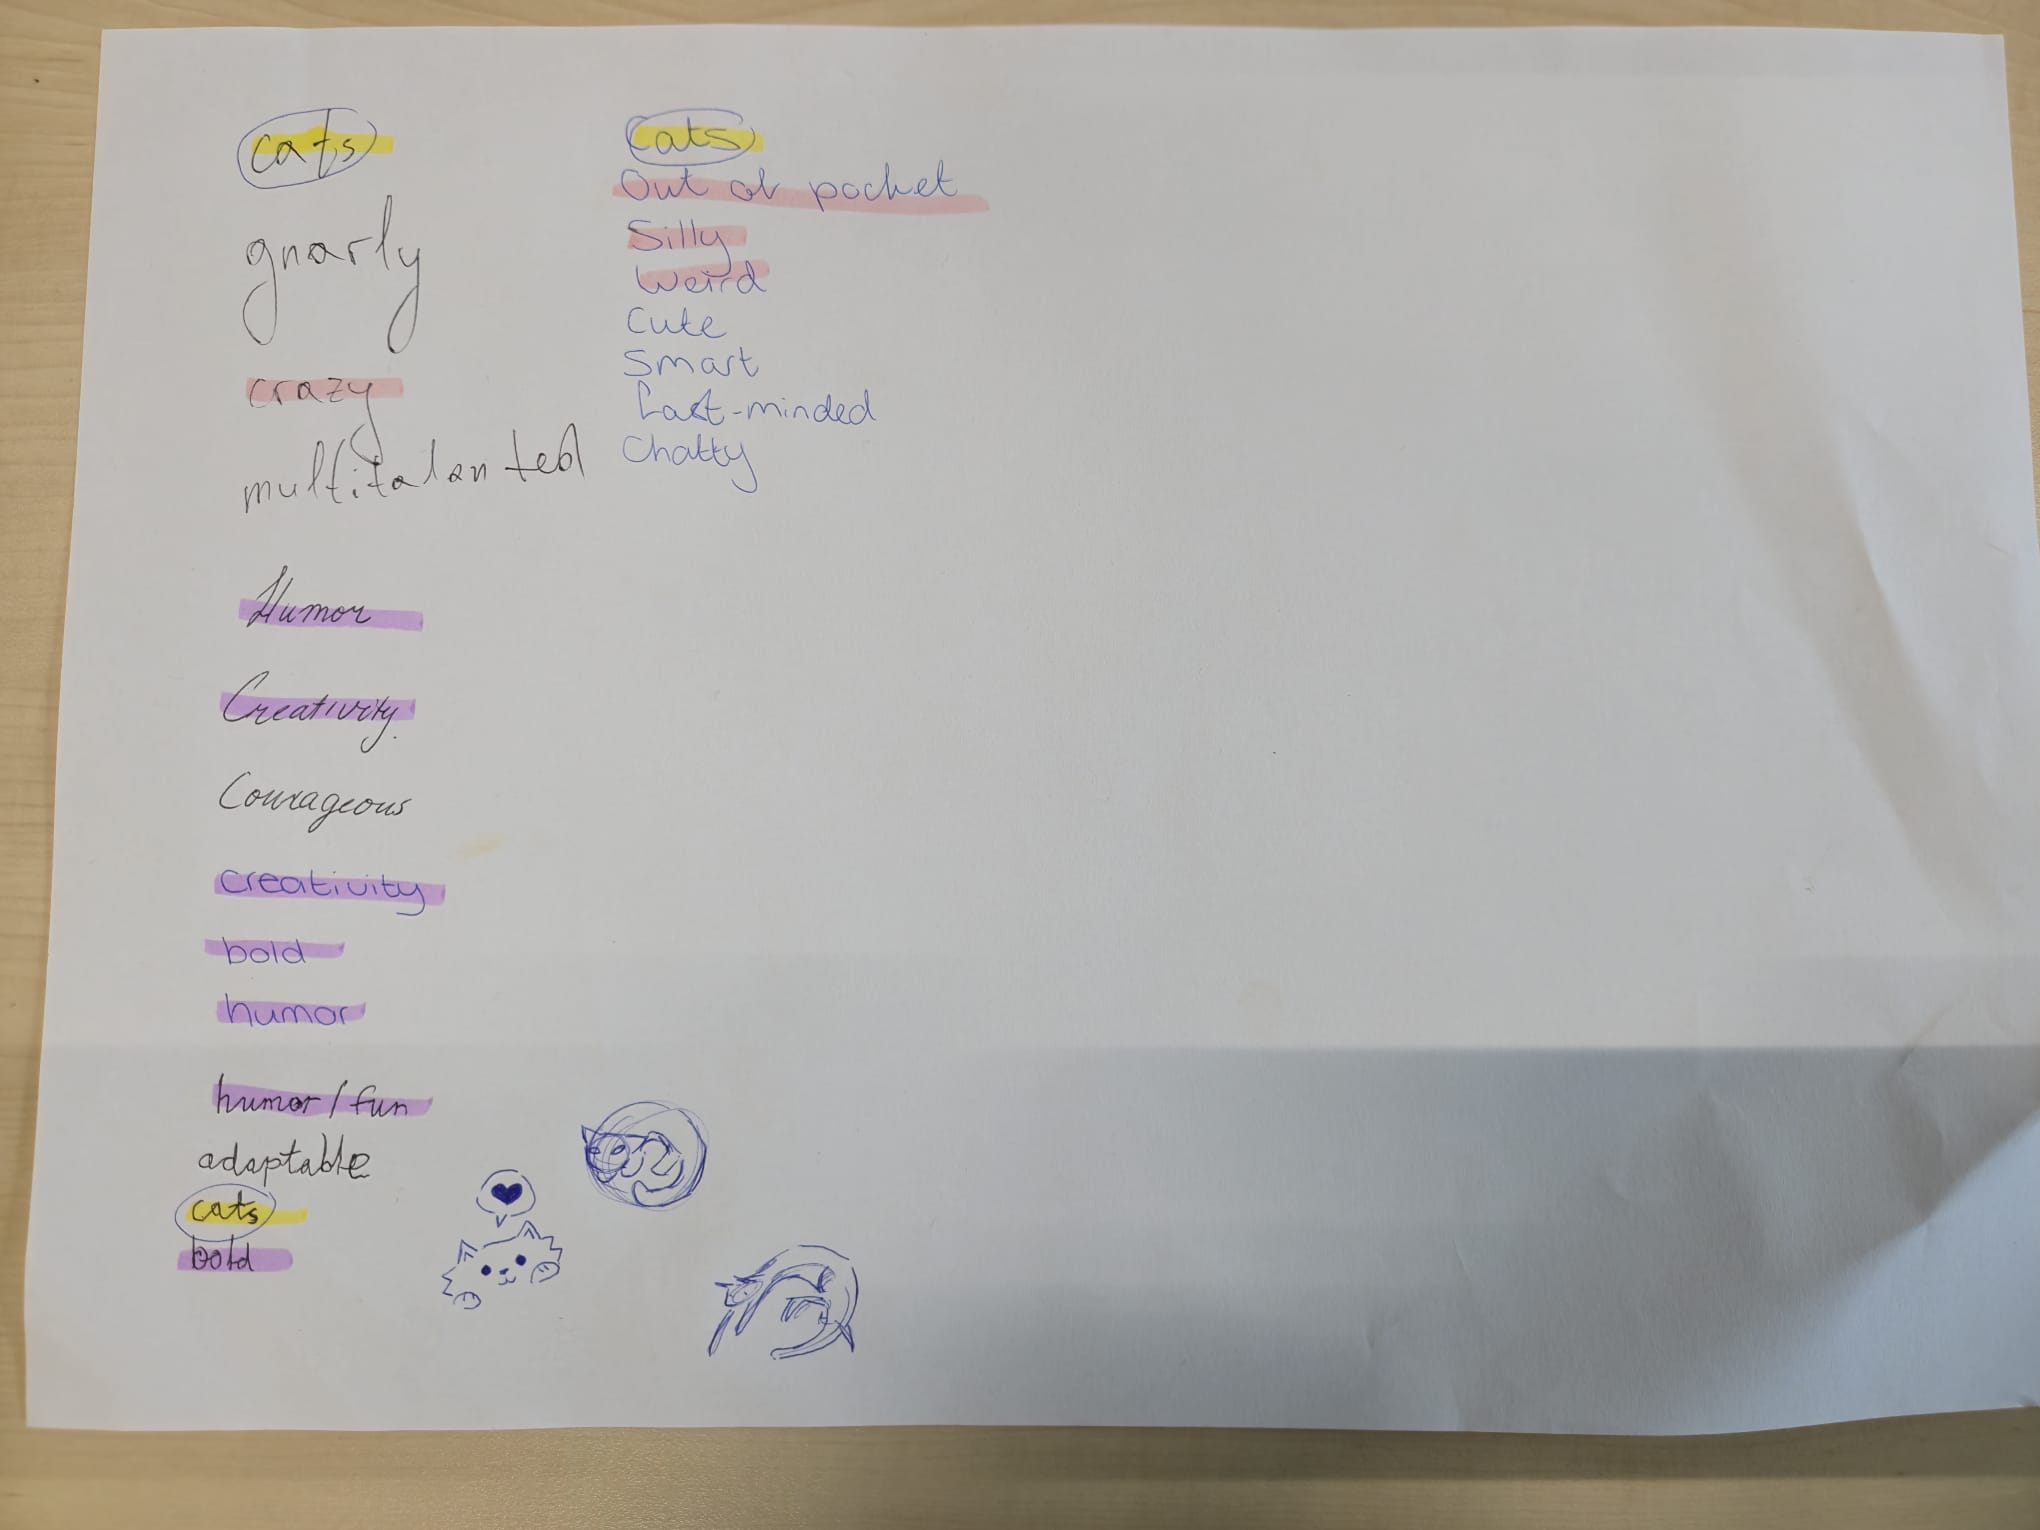 cats
gnarly
crazy
multitalented
Humor
Creativity.
Courageous
creativity
bold
humor
humor/fun
adaptable
cats
bold
Cats
Out of pocket
Silly
Weird
Cute
Smart
fast-minded
Chatty